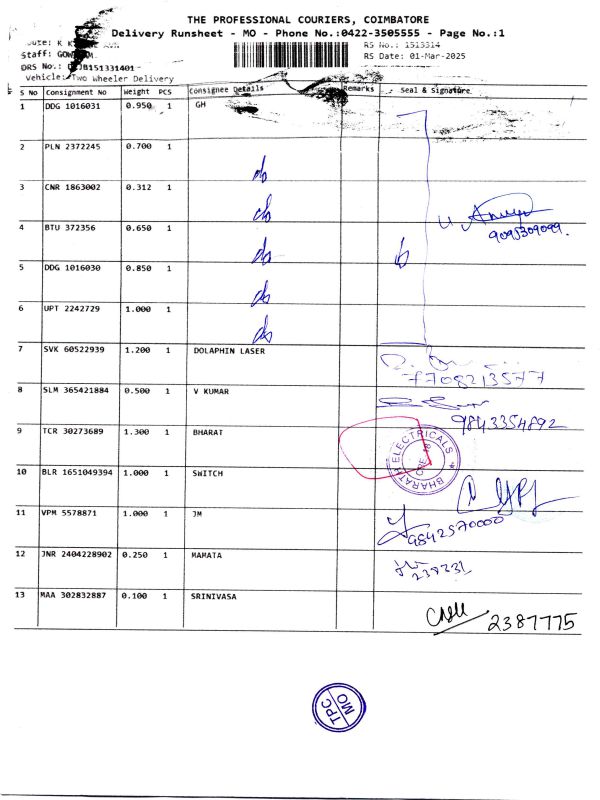 THE PROFESSIONAL COURIERS, COIMBATORE
Delivery Runsheet - MO - Phone No.:0422-3505555 - Page No.:1
RS No.: 1513314
Staff:
RS Date: 01-Mar-2025
DRS No.:
Vehicle: Two Wheeler Delivery
S No Consignment No Weight PCS Consignee Details Remarks Seal & Signature
1 DDG 1016031 0.950 1 GH
2 PLN 2372245 0.700 1
3 CNR 1863002 0.312 1
4 BTU 372356 0.650 1
9095309099.
5 DDG 1016030 0.850 1
6 UPT 2242729 1.000 1
7 SVK 60522939 1.200 1 DOLAPHIN LASER
7708213577
8 SLM 365421884 0.500 1 V KUMAR
9843354892
9 TCR 30273689 1.300 1 BHARAT
BHARATH ELECTRICALS
10 BLR 1651049394 1.000 1 SWITCH
11 VPM 5578871 1.000 1 JM
9842570000
12 JNR 2404228902 0.250 1 MAMATA
13 MAA 302832887 0.100 1 SRINIVASA
2387775
TPC
MO